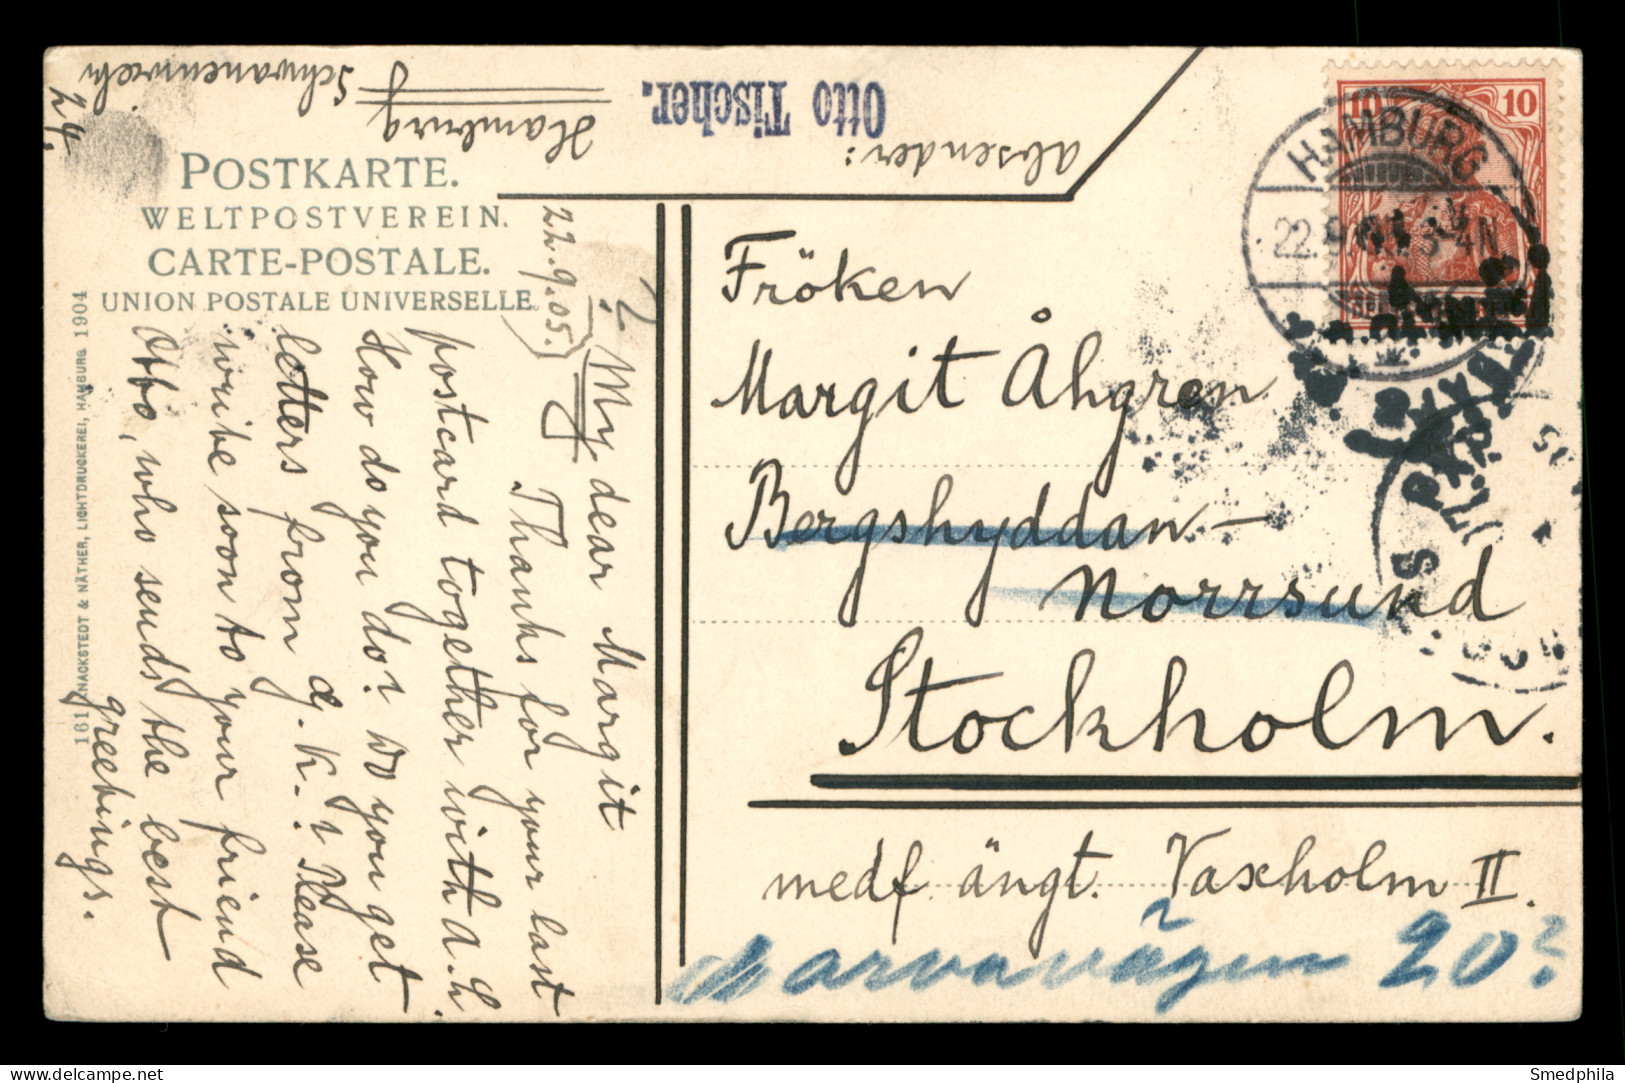 POSTKARTE.
WELTPOSTVEREIN.
CARTE-POSTALE.
UNION POSTALE UNIVERSELLE.
absender:
Otto Tischer.
Hamburg
Schwanenwiek
29.
10 10
HAMBURG
22.9.
3-4N
Fröken
Margit Åhgren
Bergshyddan-
Norrsund
Stockholm.
medf. ångt. Vaxholm II.
20?
22.9.05.
My dear Margit
Thanks for your last
postcard together with a. h.
How do you do? Do you get
letters from
K.? Please
write soon to your friend
Otto, who sends the best
greetings.
161 KNACKSTEDT & NÄTHER, LICHTDRUCKEREI, HAMBURG 1904
Smedphila